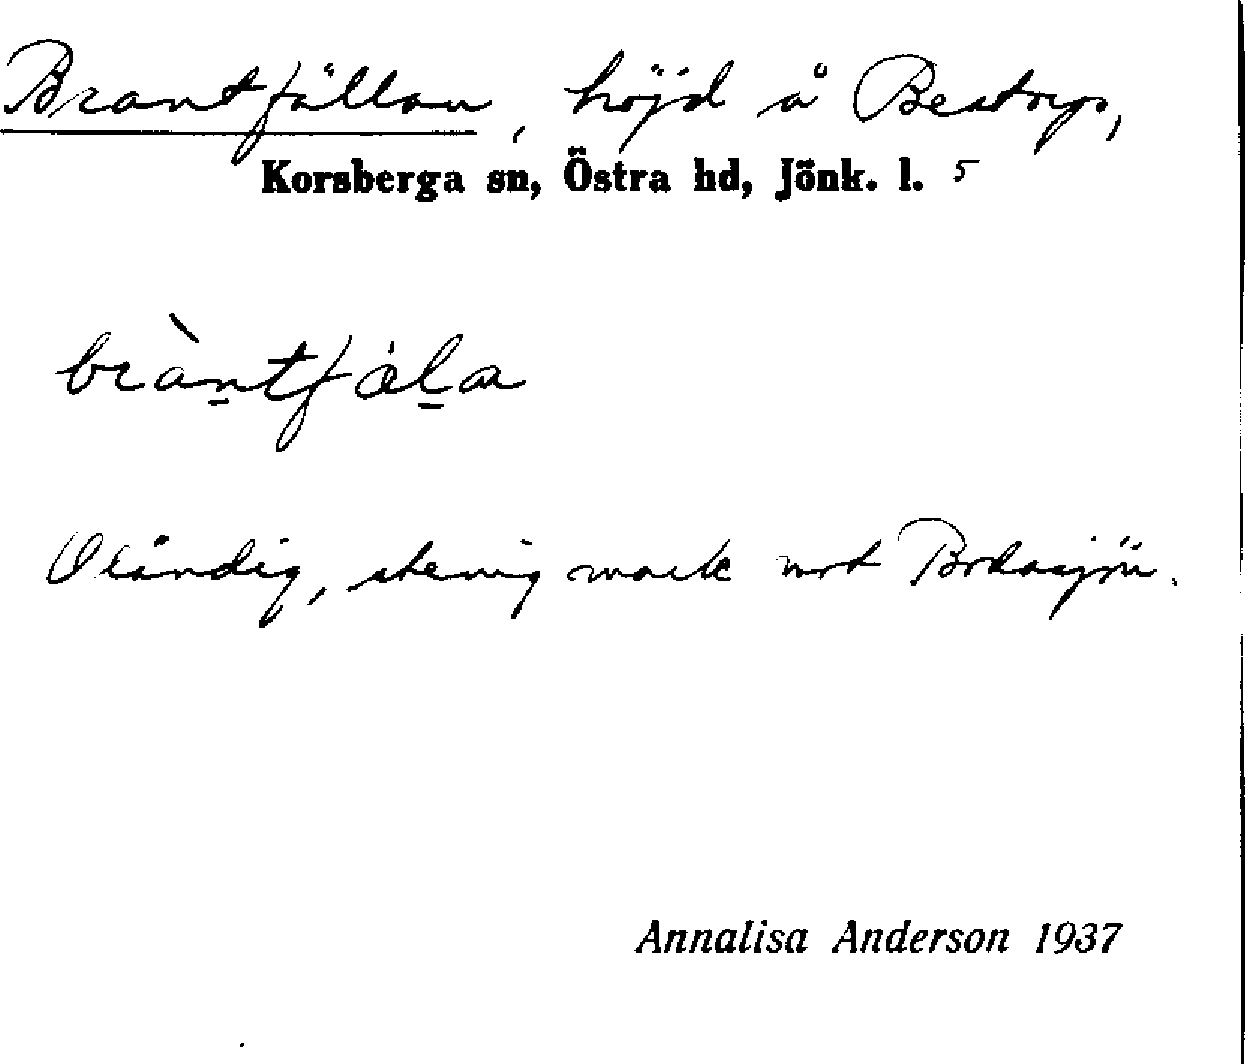 Brantfällan, höjd å Bestorp,
Korsberga sn, Östra hd, Jönk. l. 5
bràntfäla
Oländig, stenig mark mot Bodasjön.
Annalisa Anderson 1937